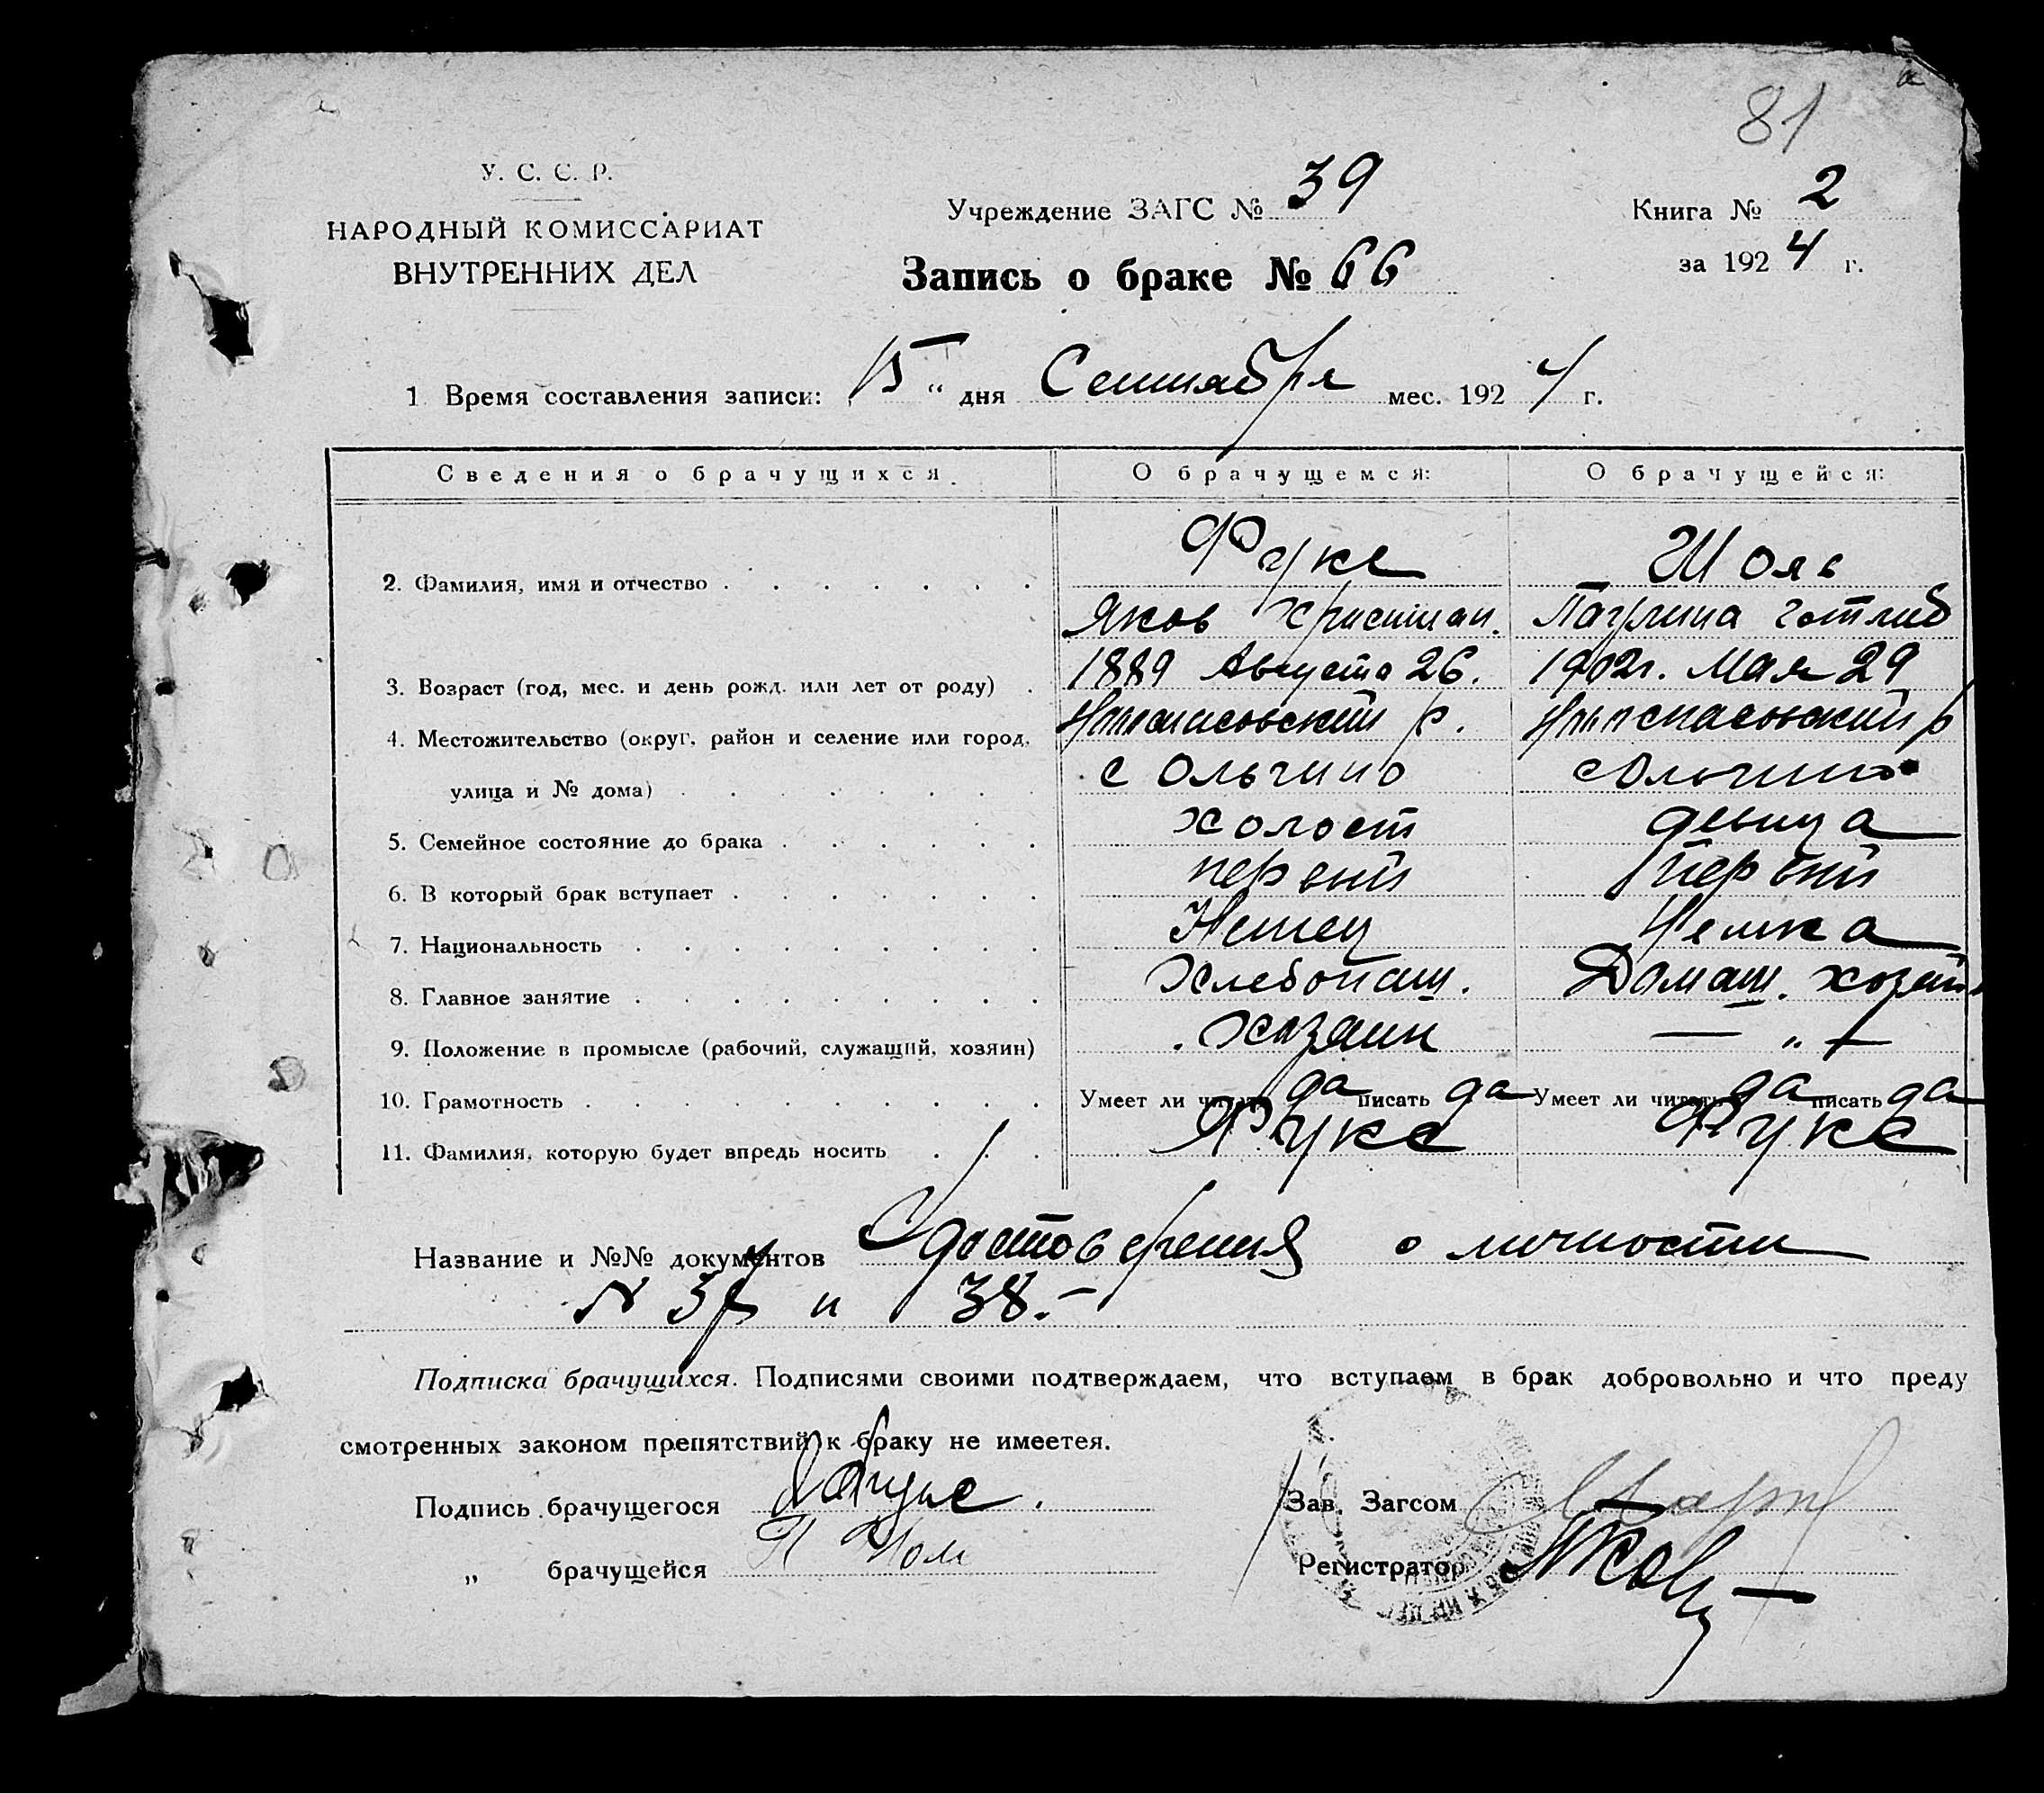 81
У. С. С. Р.
НАРОДНЫЙ КОМИССАРИАТ
ВНУТРЕННИХ ДЕЛ
Учреждение ЗАГС № 39
Книга № 2
Запись о браке № 66
за 1924 г.
1 Время составления записи: 15 " дня Сентября мес. 1924 г.
Сведения о брачущихся. О брачущемся: О брачущейся:
2. Фамилия, имя и отчество Фукс Шоль
Яков Христиан. Паулина Готлиб
3. Возраст (год, мес. и день рожд. или лет от роду) 1889 Августа 26. 1902г. Мая 29
4. Местожительство (округ, район и селение или город, р. р
улица и № дома) с Ольгино с Ольгино
5. Семейное состояние до брака холост девица
6. В который брак вступает первый первый
7. Национальность Немец Немка
8. Главное занятие Хлебопаш. Домаш. хозяй.
9. Положение в промысле (рабочий, служащий, хозяин) Хозяин — „ —
10. Грамотность Умеет ли читать да писать да Умеет ли читать да писать да
11. Фамилия, которую будет впредь носить Фукс Фукс
Название и №№ документов Удостоверения о личности
N 37 и 38.-
Подписка брачущихся. Подписями своими подтверждаем, что вступаем в брак добровольно и что преду
смотренных законом препятствий к браку не имеетея.
Подпись брачущегося Я Фукс.
Зав. Загсом
„ брачущейся П Шол
Регистратор